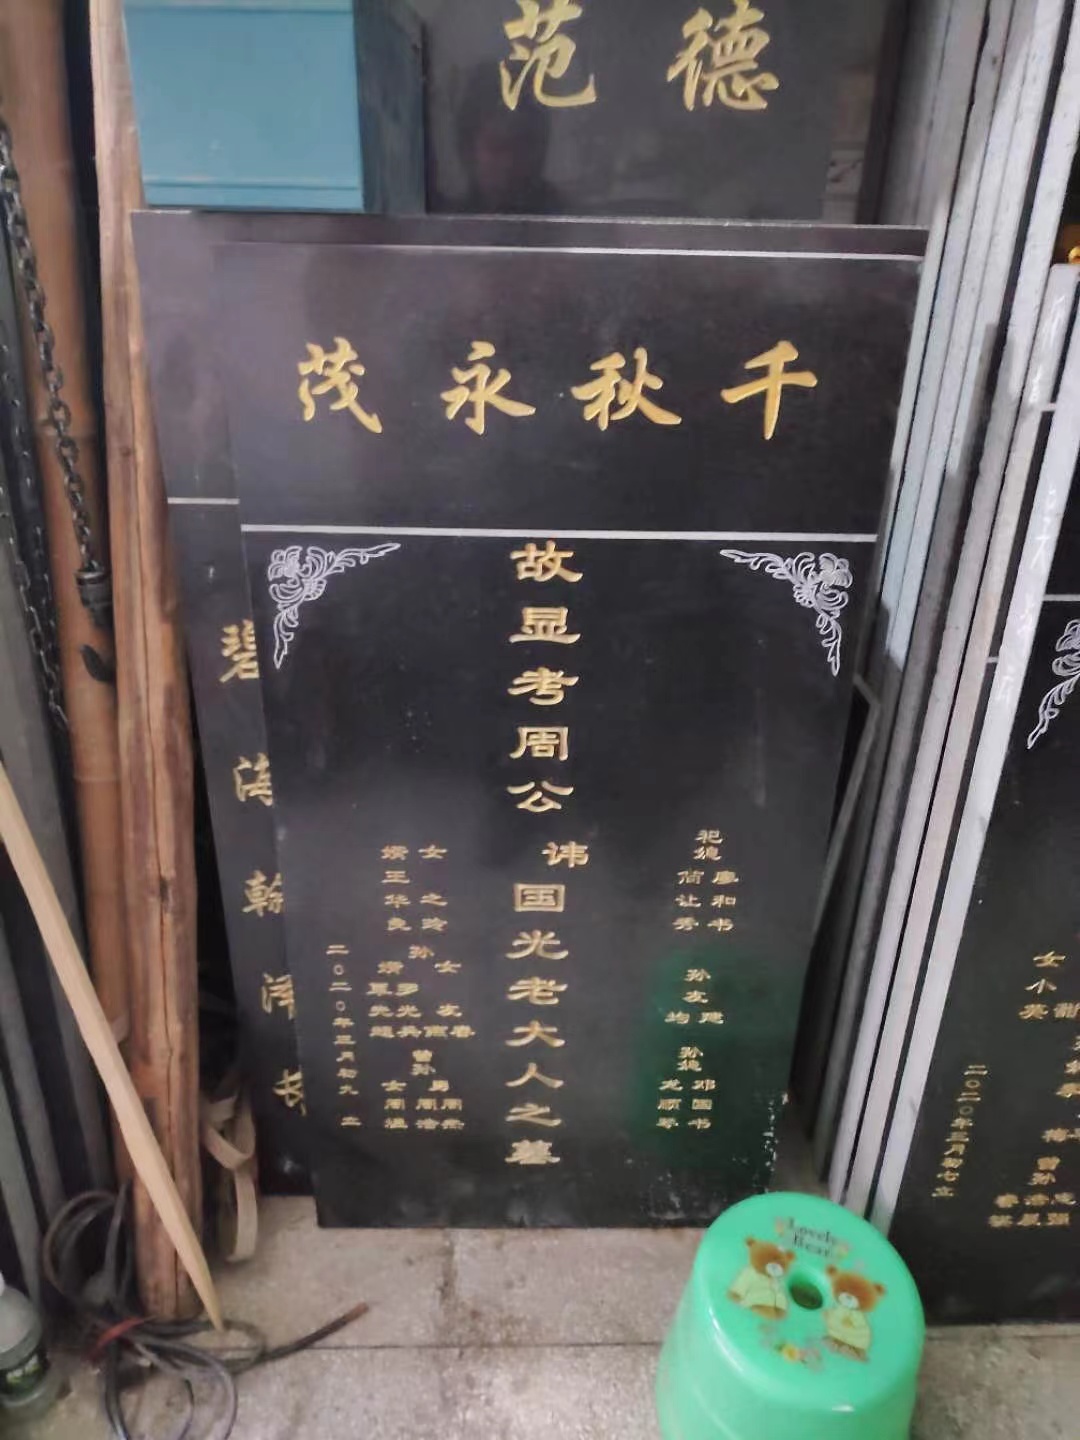 德范
千秋永茂
故显考周公讳国光老大人之墓
祀媳
廖和书
简让秀
孙
友建
孙媳
邓国书
龙顺琴
女
之玲
婿
王华良
孙
女
婿
曾孙
男
女
二〇二〇年三月初九 立
碧
海
翰
泽
长
女
小英
曾孙
二〇二〇年三月初七立
Lovely
Bear